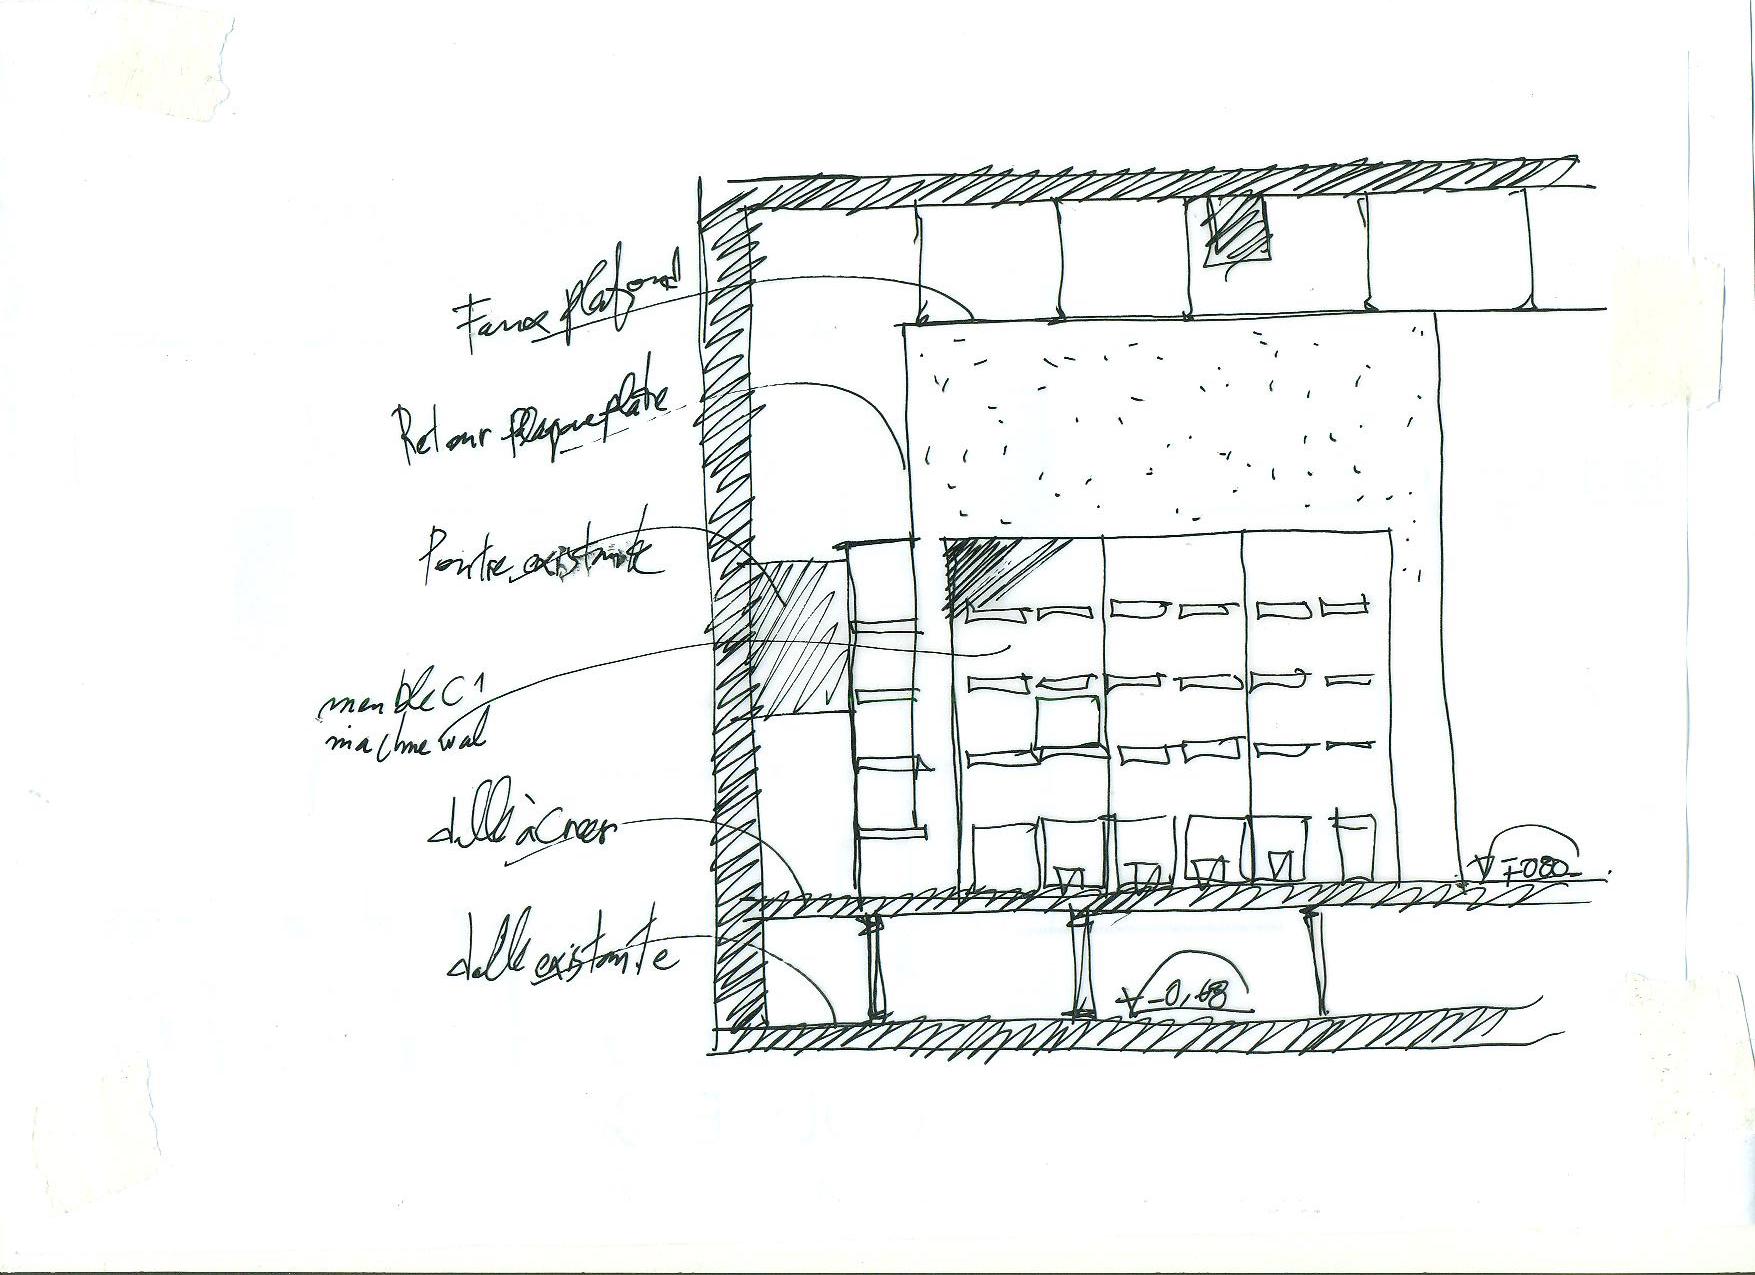 Faux plafond
Retour plaque platre
Poutre existante
meuble C1
dalle à Créer
dalle existante
-0,68